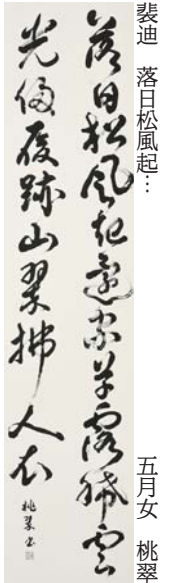 裴迪　落日松風起…
五月女　桃翠
落日松風起還家草露晞雲
光侵履跡山翠拂人衣
桃翠書